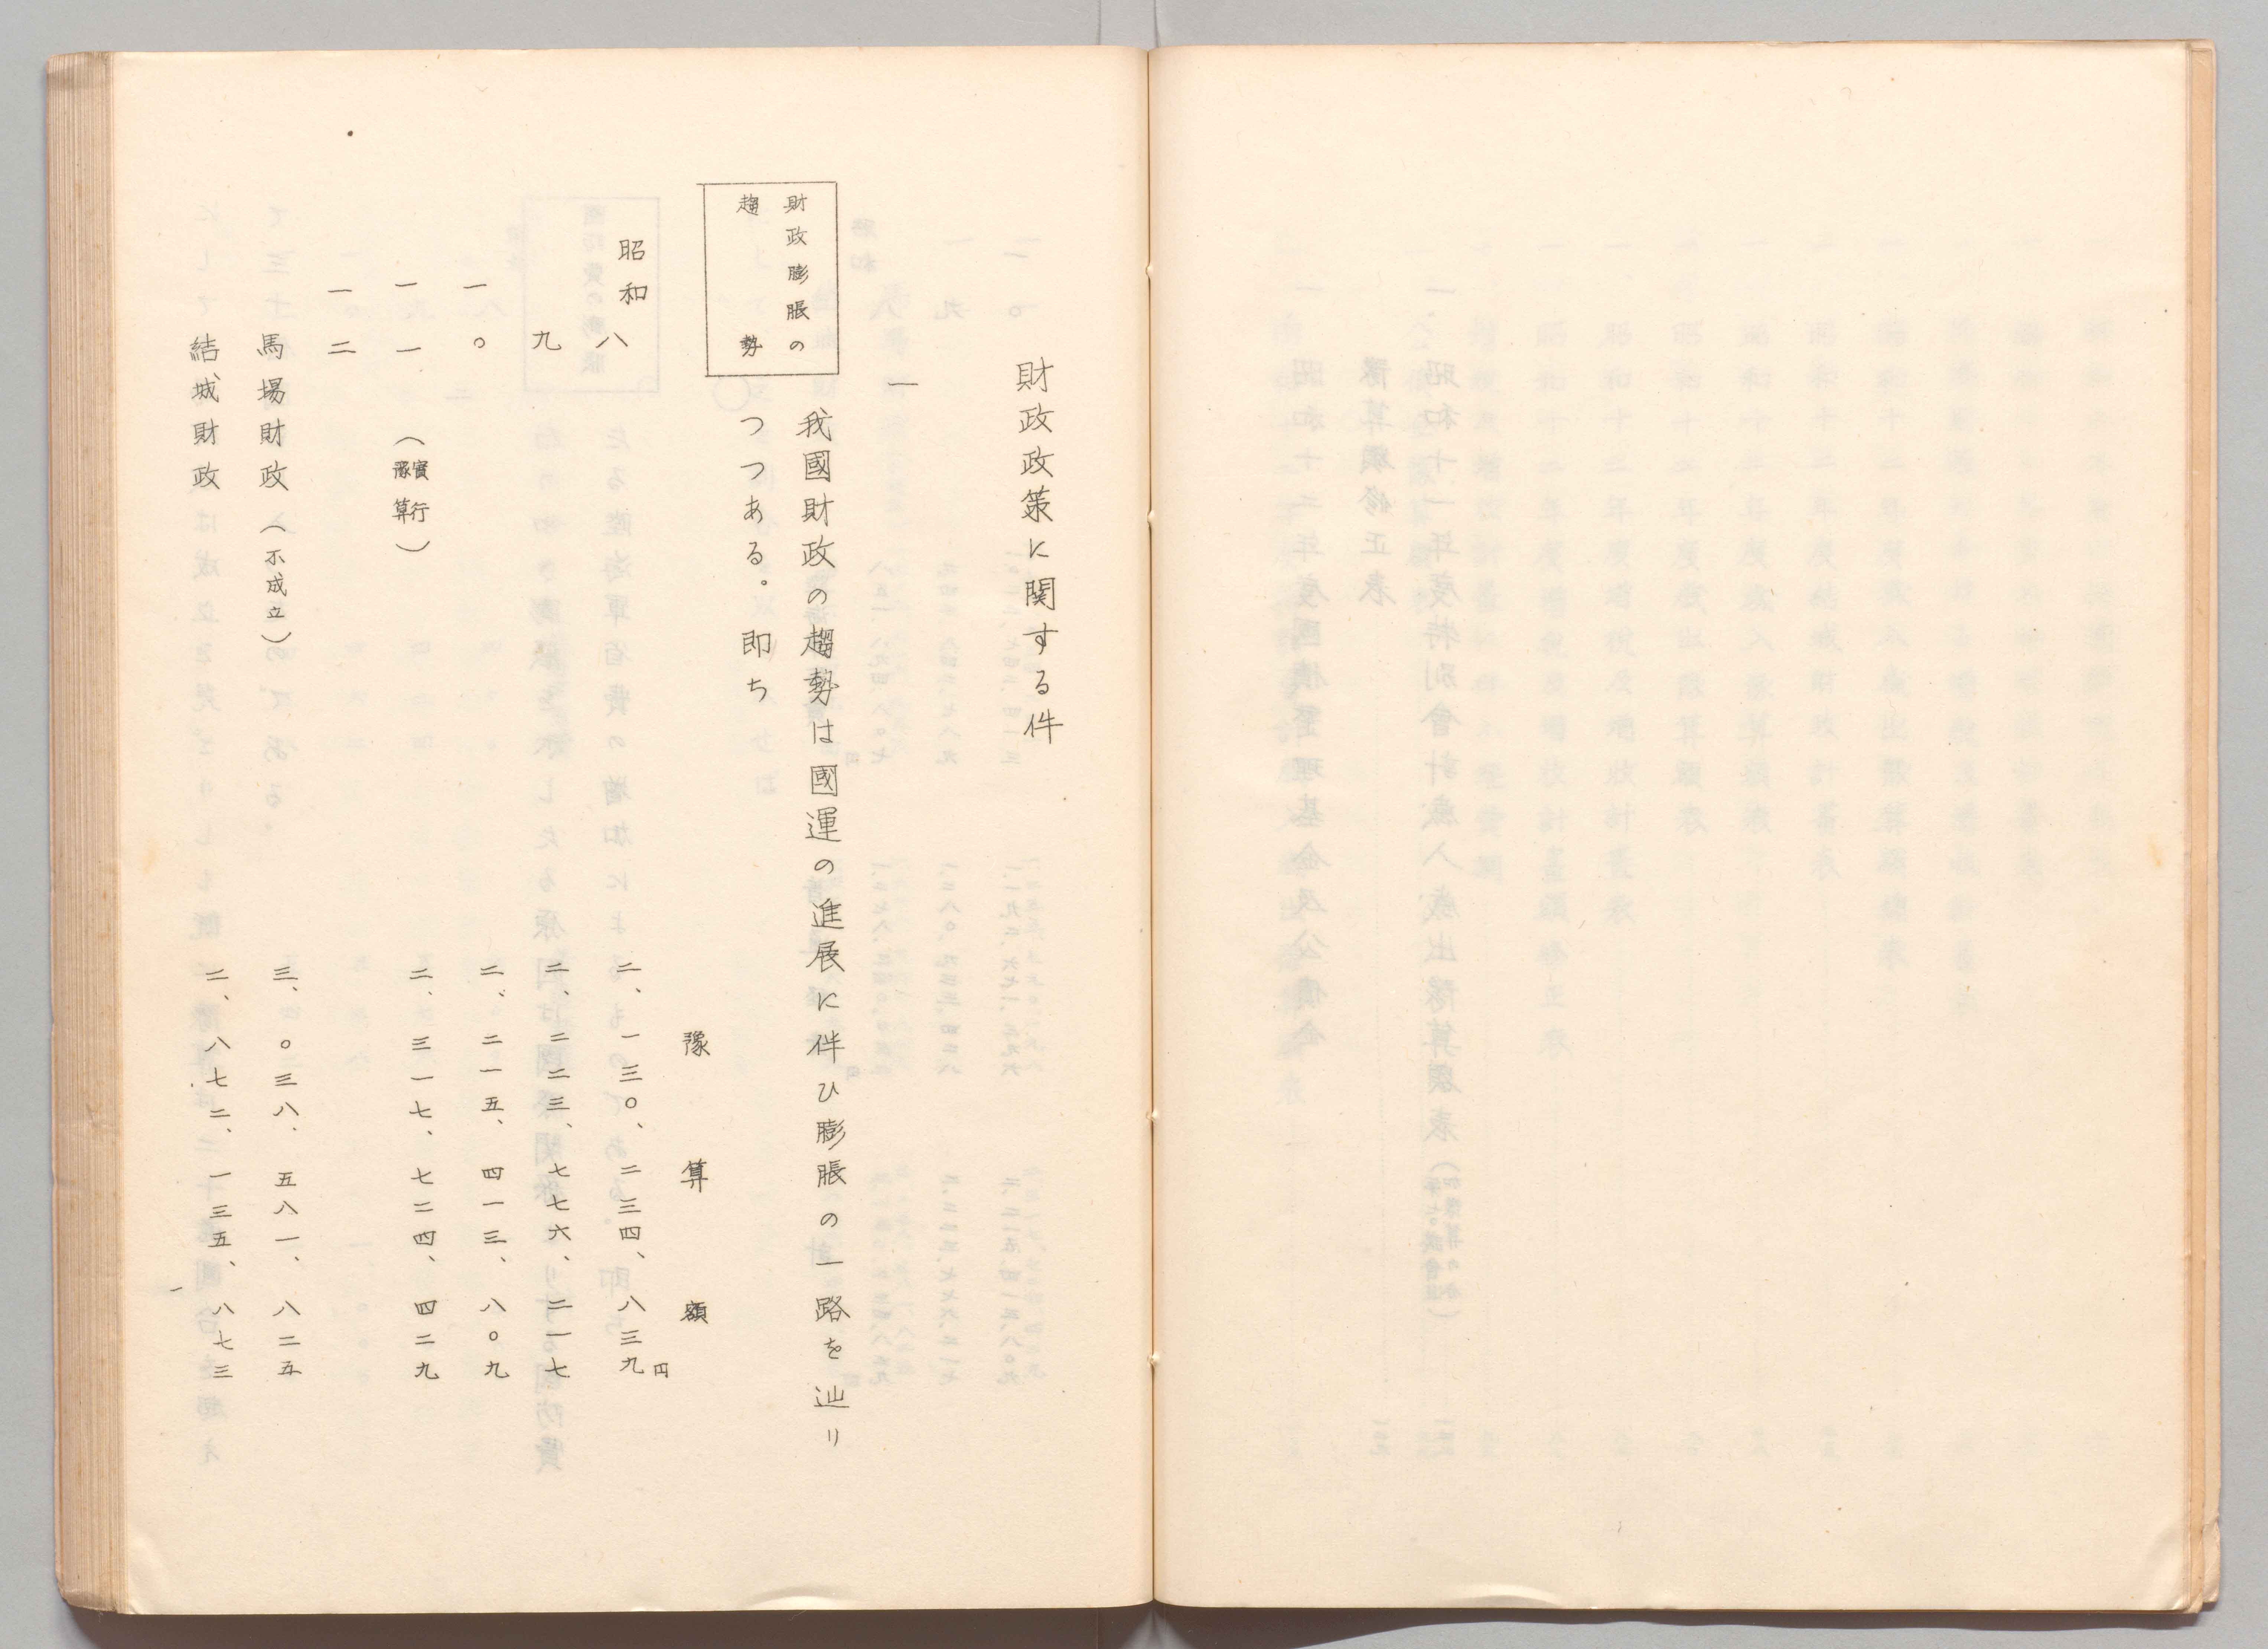 財政政策に関する件
一
財政膨脹の
趨勢
我國財政の趨勢は國運の進展に伴ひ膨脹の一路を辿り
つつある。即ち
豫算額
昭和八 二、一三〇、二三四、八三九円
九 二、二二三、七七六、二一七
一〇 二、二一五、四一三、八〇九
一一（實行豫算） 二、三一七、七二四、四二九
一二
馬場財政（不成立） 三、〇三八、五八一、八二五
結城財政 二、八七二、一三五、八七三